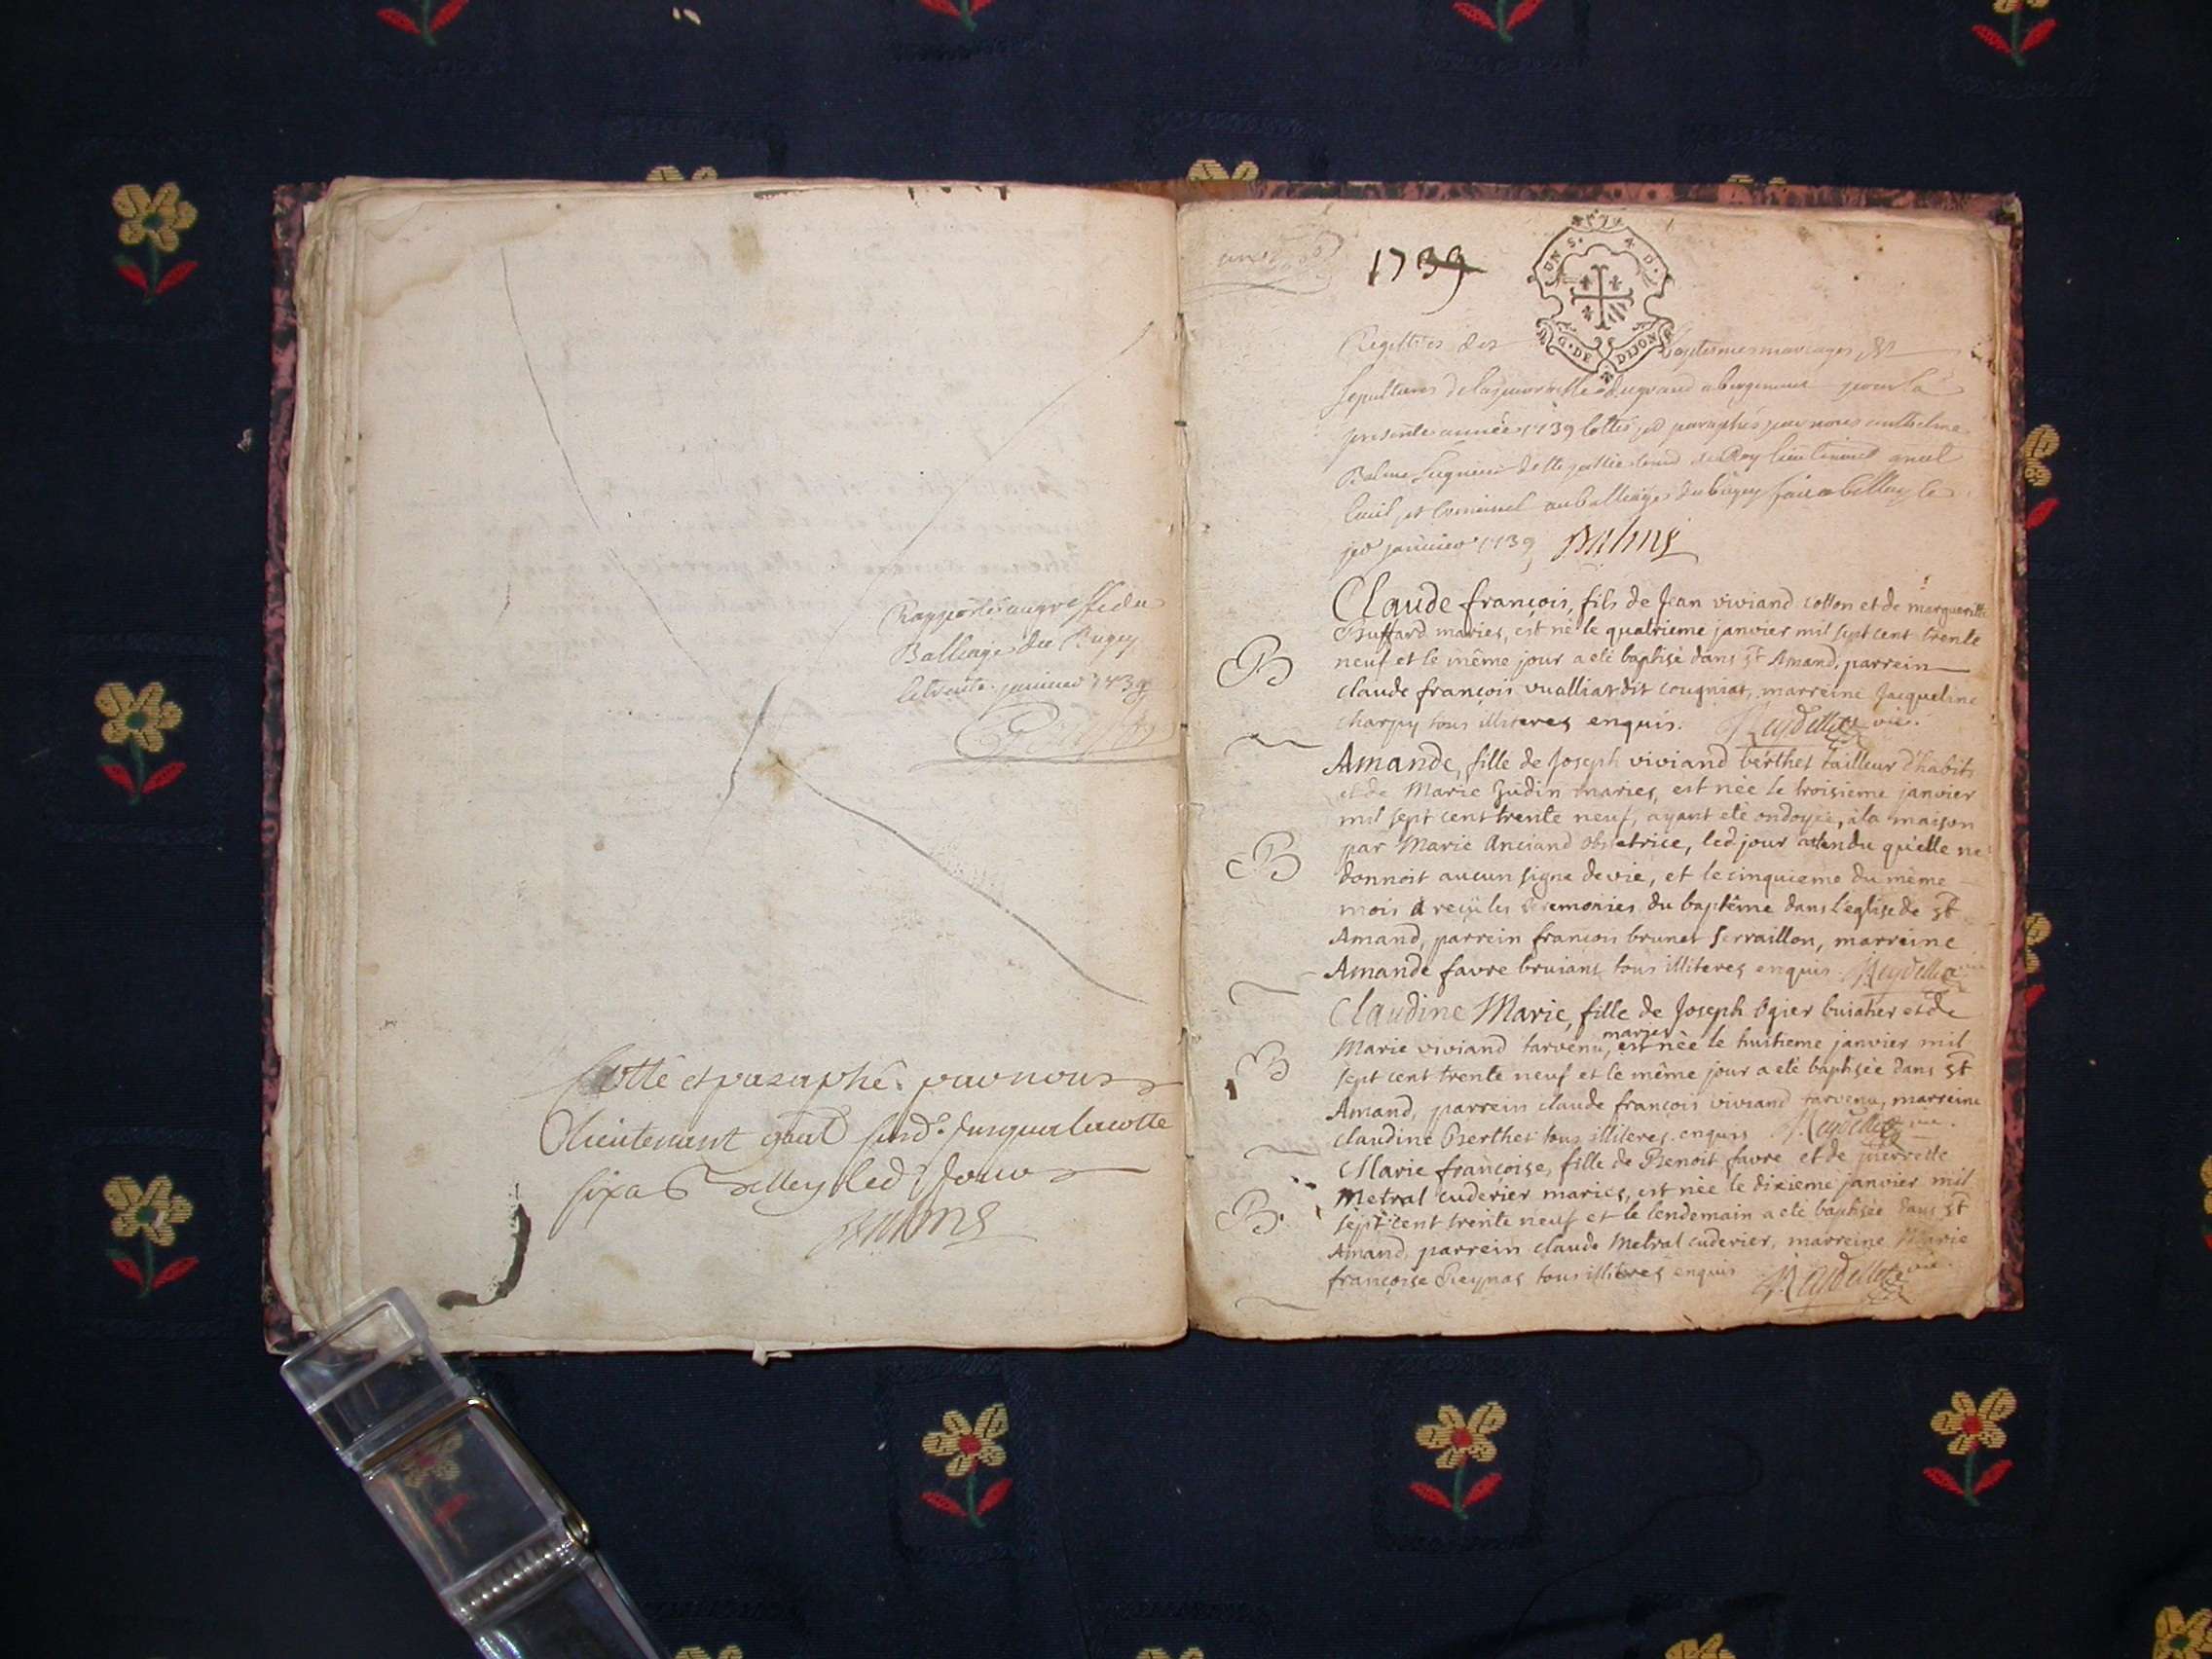 Rapporté au greffe du
Balliage du Bugey
le trente janvier 1739
Cotté et paraphé par nous
Lieutenant gnal susd. jusqua la cotte
six a Belley led. jour
Balme
1739
UN S. 4 D.
G. DE DIJON
Registres des baptesmes mariages &
sepultures de la parroisse du grand abergement pour la
presente année 1739 cottés et paraphés par nous anthelme
Balme du Roy lieutenant gnal
Civil et Criminel au balliage du bugey fait a belley le
janvier 1739 Balme
Claude françois, fils de Jean viviand cotton et de margueritte
Buffard mariés, est né le quatrieme janvier mil sept cent trente
B neuf et le même jour a eté baptisé dans St Amand, parrein
claude françois vualliat dit cougniat, marreine Jacqueline
charpy tous illiteres enquis. Reydellet vic.
Amande, fille de Joseph viviand berthet tailleur d'habits
et de Marie Judin mariés, est née le troisieme janvier
mil sept cent trente neuf, ayant eté ondoyée, à la maison
par Marie Anciand obstetrice, led jour attendu qu'elle ne
B donnoit aucun signe de vie, et le cinquieme du même
mois a reçu les ceremonies du baptême dans l'eglise de St
Amand, parrein françois brunet serraillon, marreine
Amande favre bruiant tous illiteres enquis Reydellet vic
Claudine Marie, fille de Joseph Ogier buiather et de
Marie viviand tarvenu, mariés est née le huitieme janvier mil
B sept cent trente neuf et le même jour a eté baptisée dans St
Amand, parrein claude françois viviand tarvenu, marreine
claudine Berthet tous illiteres enquis Reydellet vic.
Marie françoise, fille de Benoit favre et de pierrette
Metral cuderier mariés, est née le dixieme janvier mil
B sept cent trente neuf et le lendemain a eté baptisée dans St
Amand, parrein claude Metral cuderier, marreine Marie
françoise Reynas tous illiteres enquis Reydellet vic.